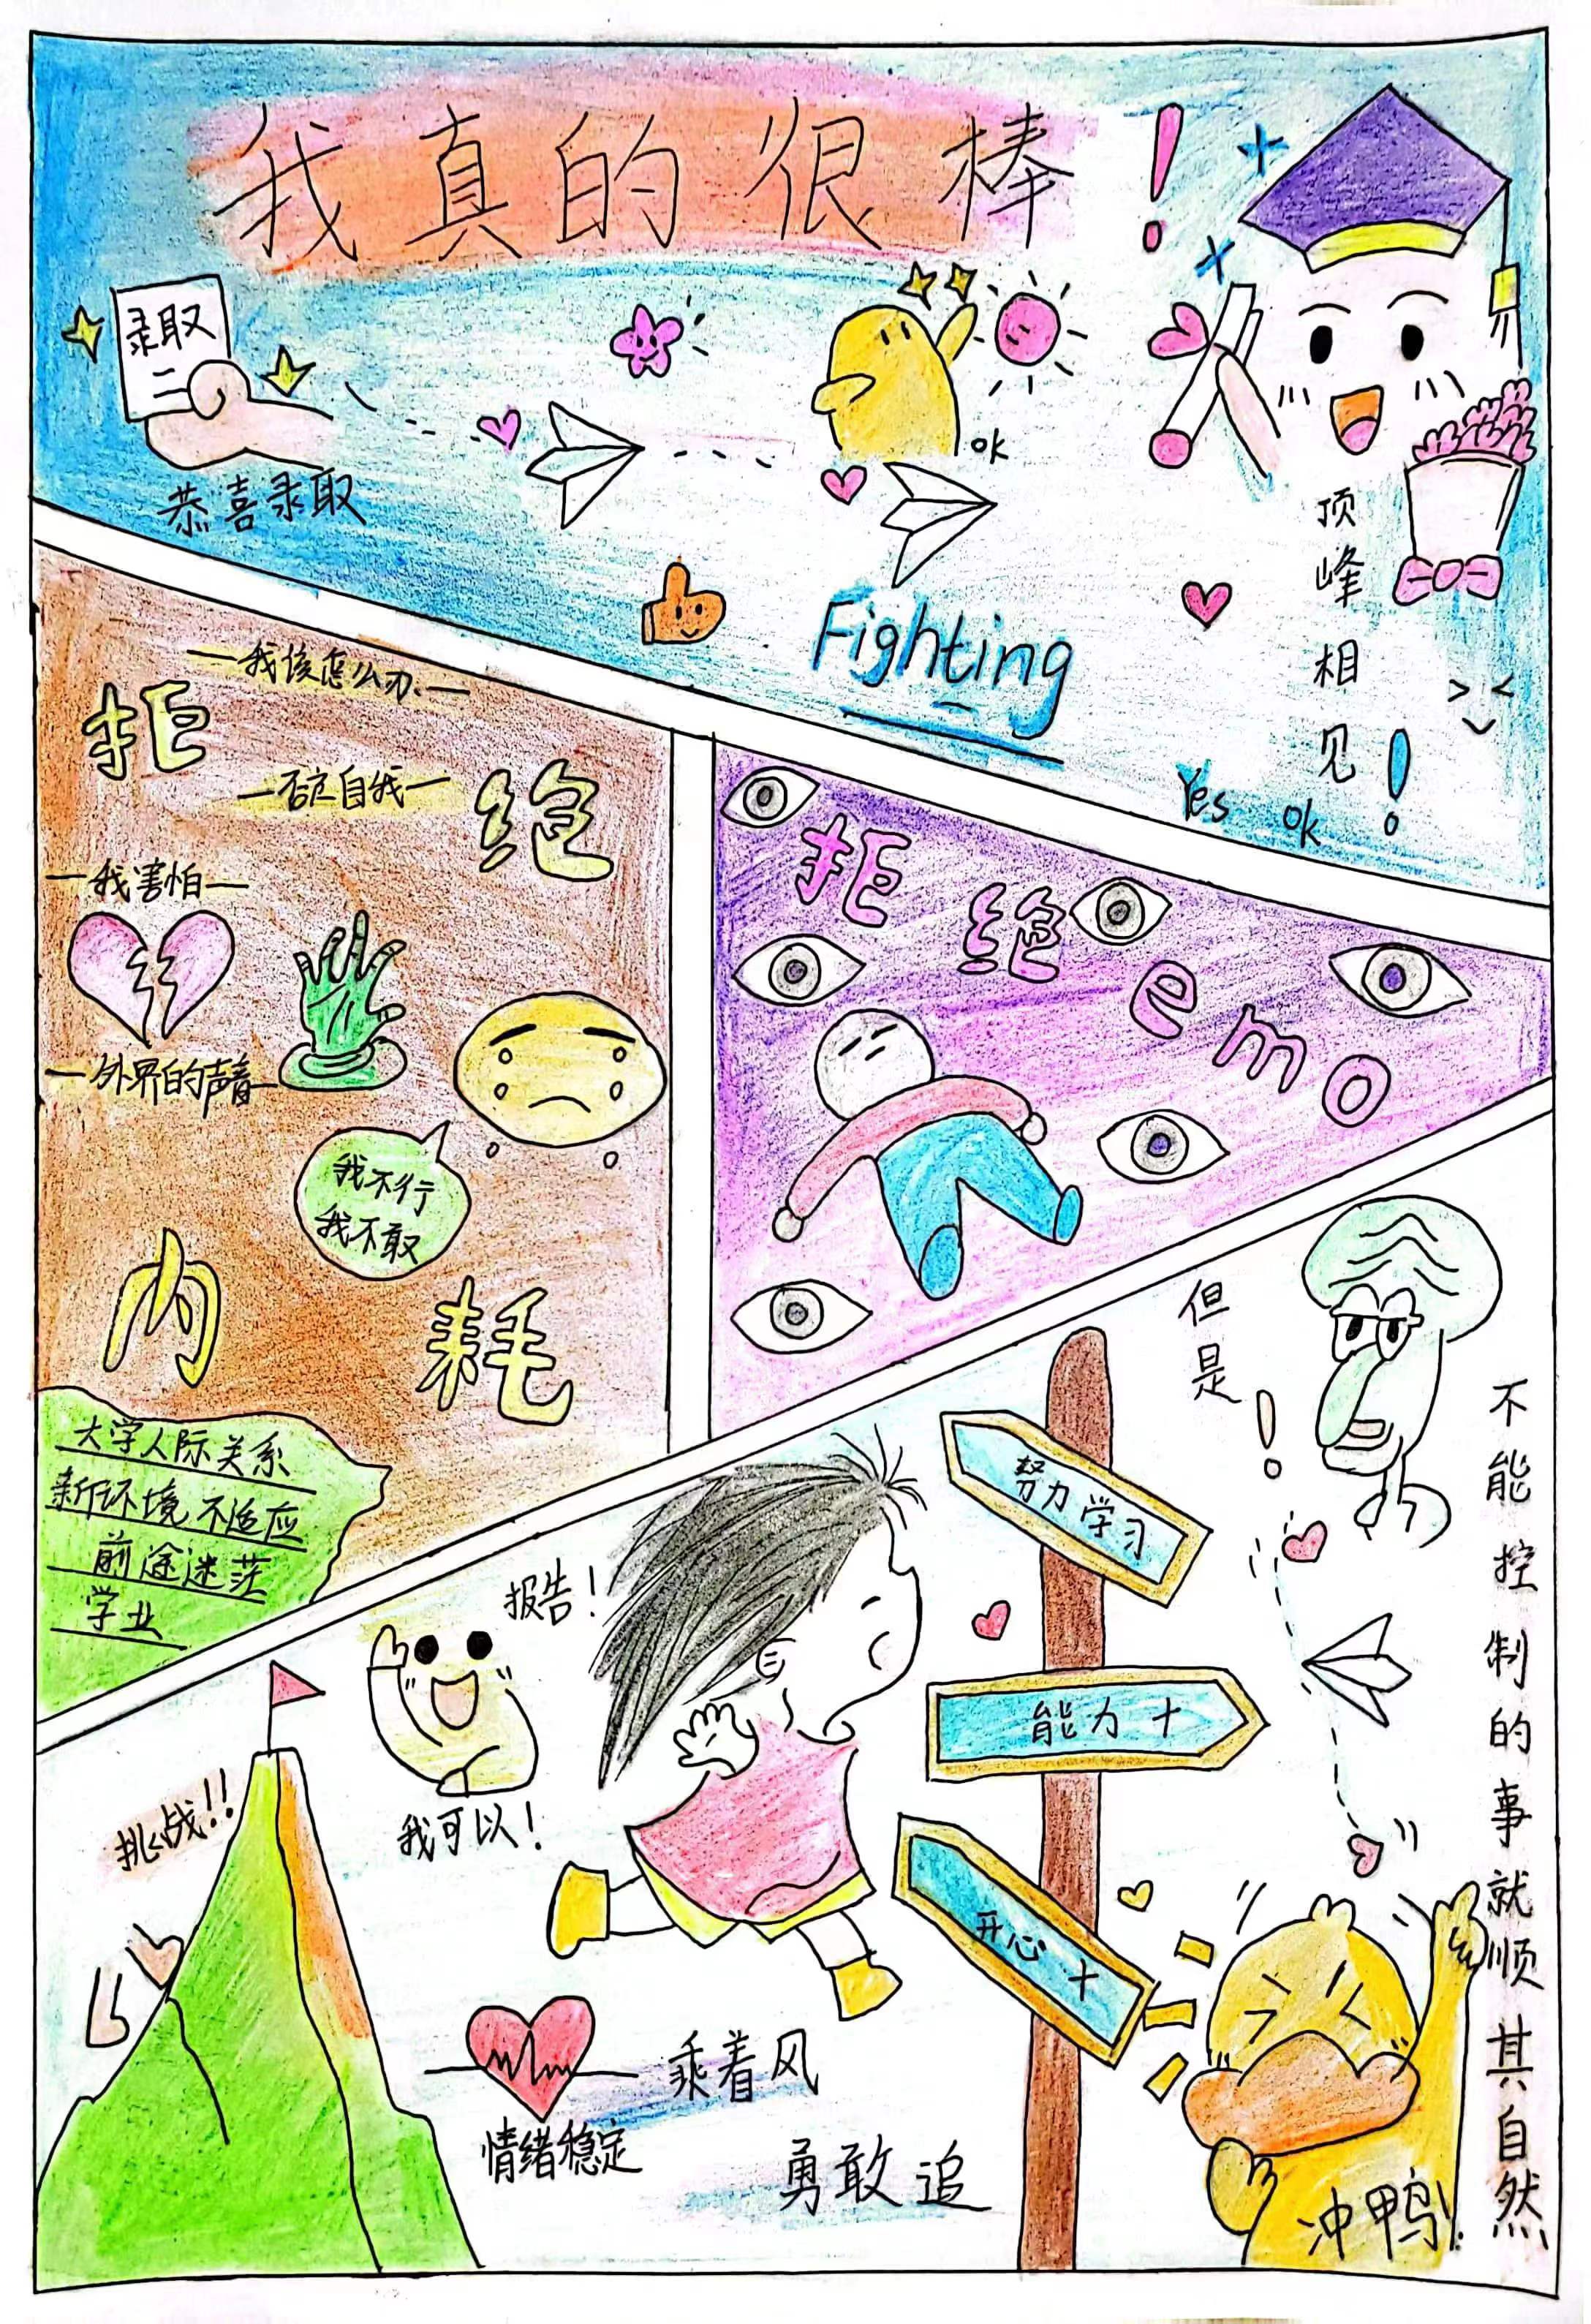 我真的很棒！
录取
恭喜录取
ok
顶峰相见！
Fighting
Yes ok
拒绝
我该怎么办
否定自我
我害怕
外界的声音
我不行
我不敢
内耗
大学人际关系
新环境不适应
前途迷茫
学业
拒绝emo
但是！
不能控制的事就顺其自然
努力学习
能力+
开心+
报告！
我可以！
挑战！！
情绪稳定
乘着风
勇敢追
冲鸭！